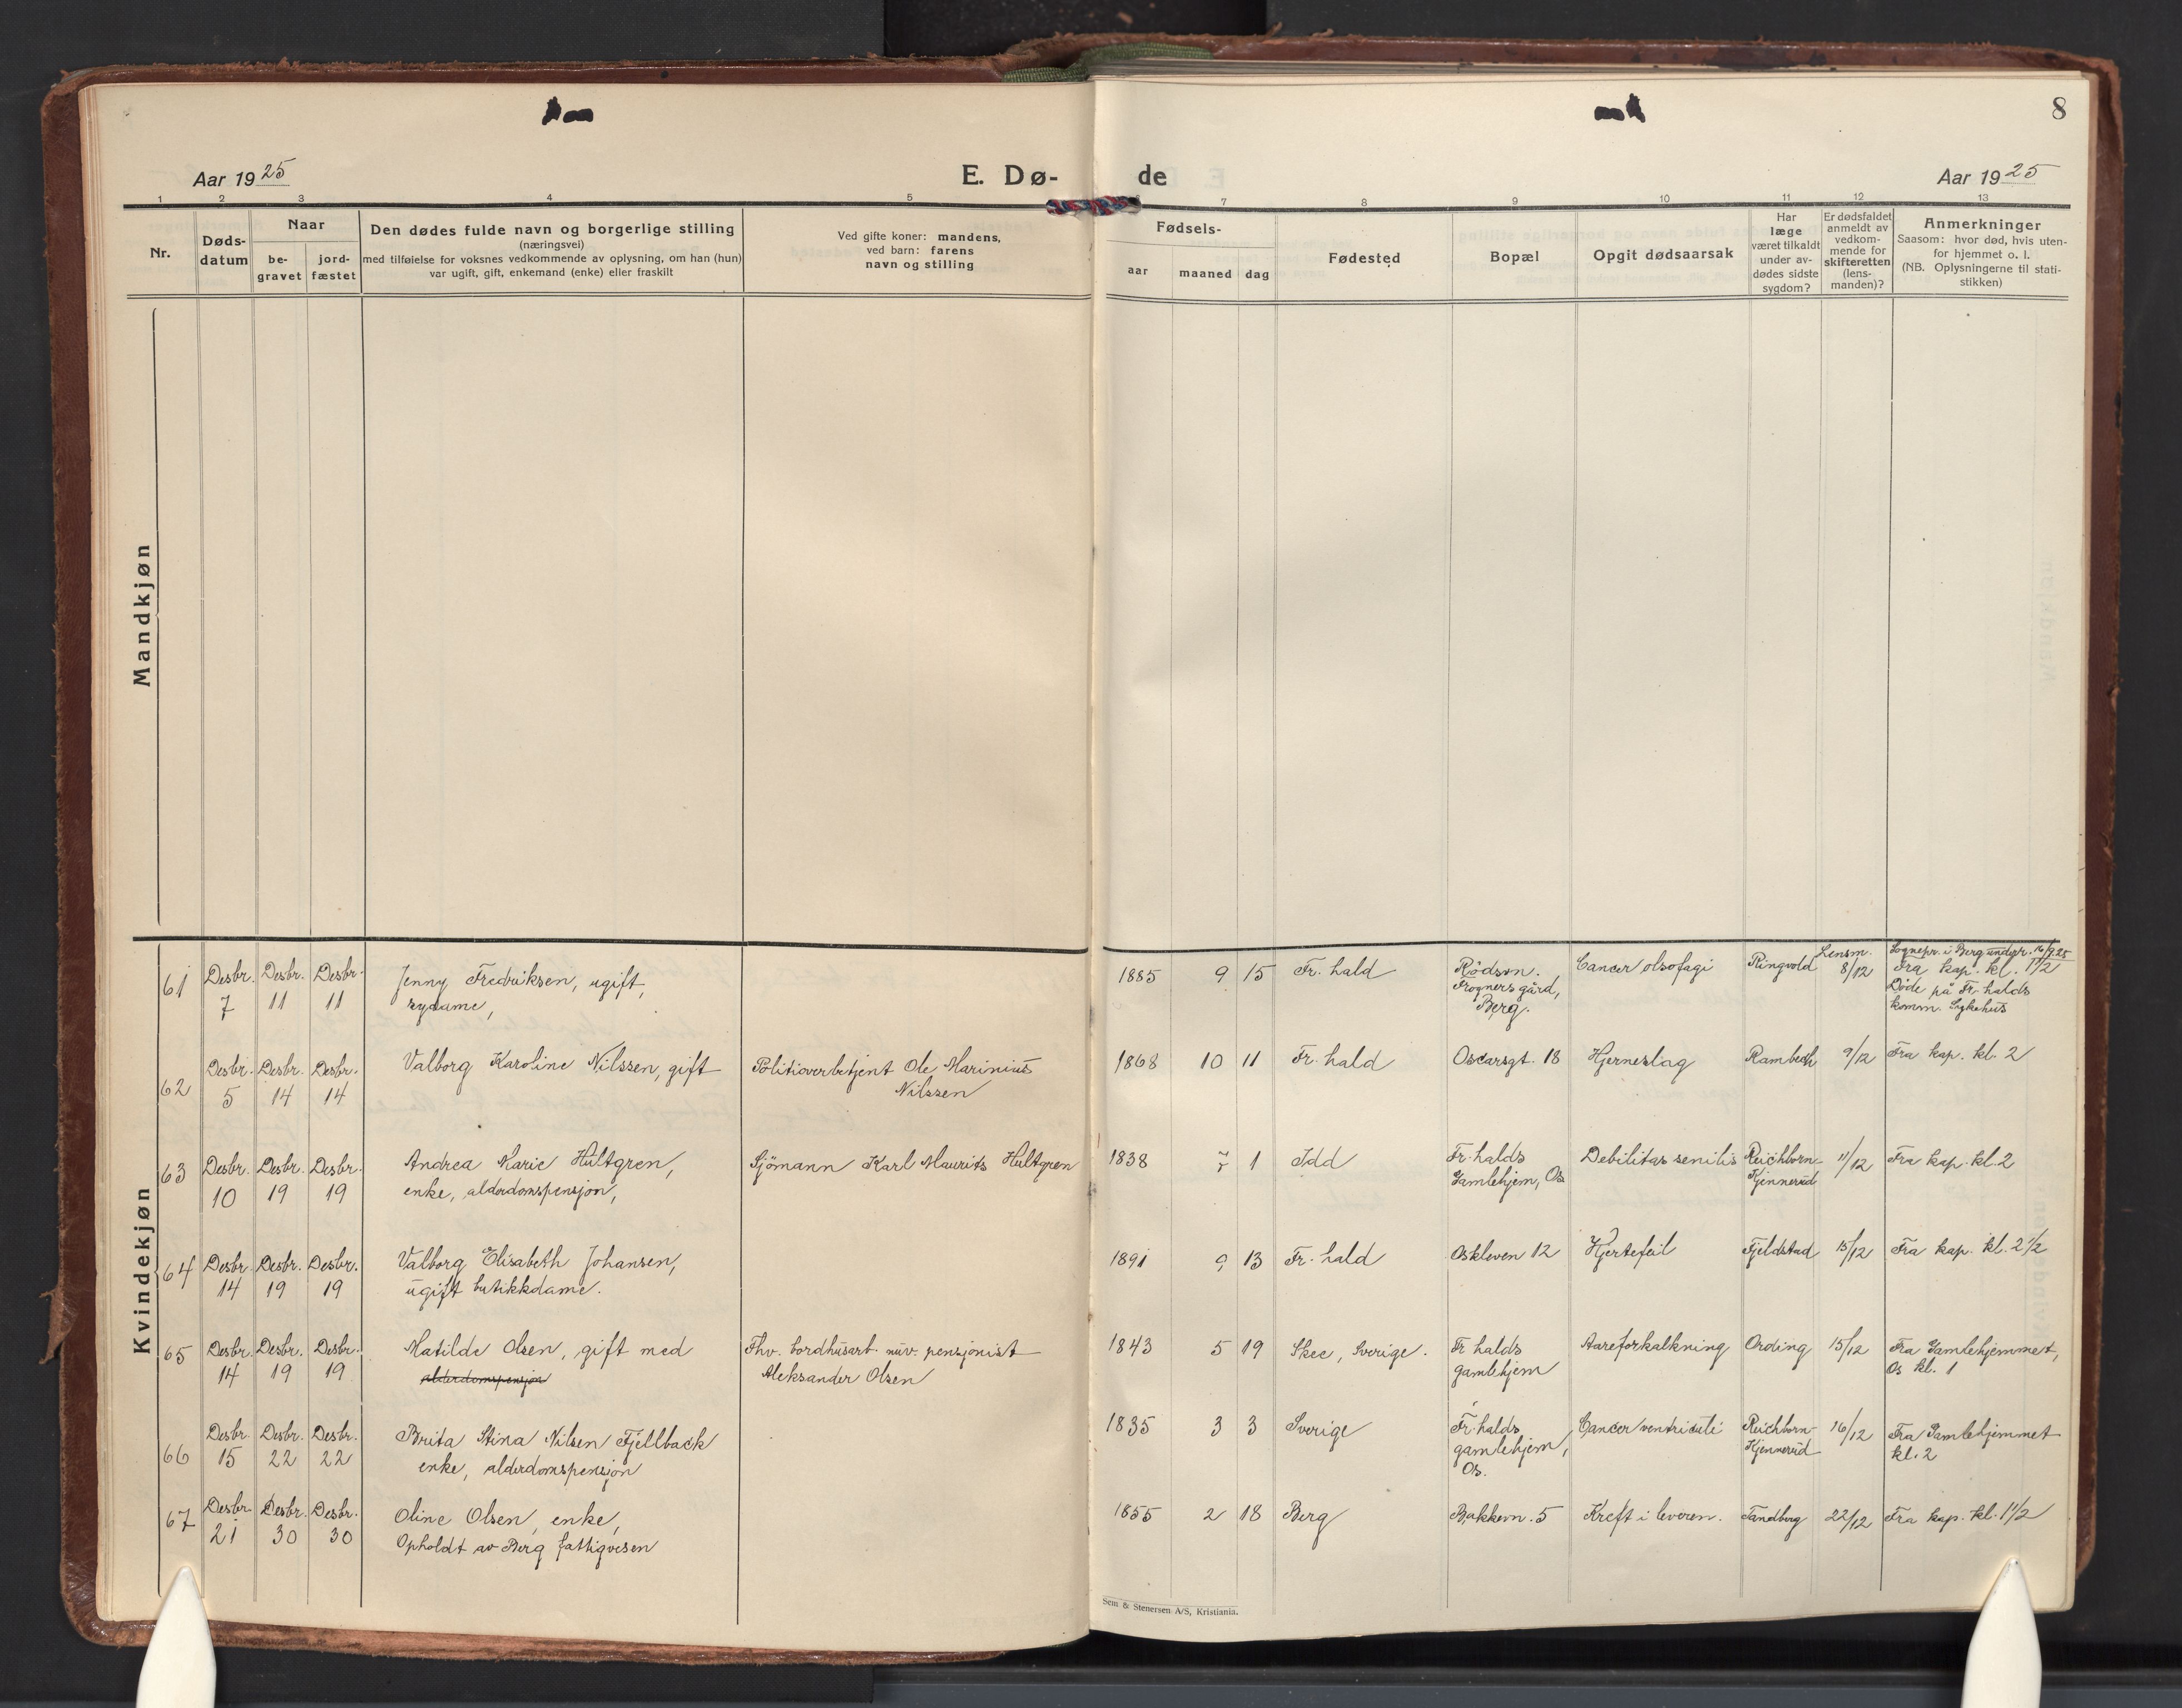 8
Aar 1925
E. Dø-
de
Aar 1925
1 2 3 4 5
7 8 9 10 11 12 13
Nr.
Døds-
datum
Naar
be-
gravet
jord-
fæstet
Den dødes fulde navn og borgerlige stilling
(næringsvei)
med tilføielse for voksnes vedkommende av oplysning, om han (hun)
var ugift, gift, enkemand (enke) eller fraskilt
Ved gifte koner: mandens,
ved barn: farens
navn og stilling
Fødsels-
aar
maaned
dag
Fødested
Bopæl
Opgit dødsaarsak
Har
læge
været tilkaldt
under av-
dødes sidste
sygdom?
Er dødsfaldet
anmeldt av
vedkom-
mende for
skifteretten
(lens-
manden)?
Anmerkninger
Saasom: hvor død, hvis uten-
for hjemmet o. l.
(NB. Oplysningerne til stati-
stikken)
Mandkjøn
Kvindekjøn
61
Desbr. 7
Desbr. 11
Desbr. 11
Jenny Fredriksen, ugift,
sydame,
1885 9 15 Fr. hald
Rødsvn.
Frogners gård,
Berg.
Cancer olsofagi
Ringvold
Lensm.
8/12
Sognepr. i Berg undgr. 16/9.25
Fra kap. kl. 1 1/2
Døde på Fr. halds
komm. Sykehus
62
Desbr. 5
Desbr. 14
Desbr. 14
Valborg Karoline Nilssen, gift
Politioverbetjent Ole Marinius
Nilssen
1868 10 11 Fr. hald
Oscarsgt. 18
Hjerneslag
Rambech
9/12
Fra kap. kl. 2
63
Desbr. 10
Desbr. 19
Desbr. 19
Andrea Marie Hultgren,
enke, alderdomspensjon,
Sjömann Karl Maurits Hultgren
1838 1 Idd
Fr. halds
Gamlehjem, Os
Debilitas senilis
Reichborn-
Kjennerud
11/12
Fra kap. kl. 2
64
Desbr. 14
Desbr. 19
Desbr. 19
Valborg Elisabeth Johansen,
ugift butikkdame.
1891 9 13 Fr. hald
Oskleven 12
Hjertefeil
Fjeldstad
15/12
Fra kap. kl. 2 1/2
65
Desbr. 14
Desbr. 19
Desbr. 19
Matilde Olsen, gift med
alderdomspensjon
Fhv. bordhusarb. nuv. pensjonist
Aleksander Olsen
1843 5 19 Skee, Sverige.
Fr halds
gamlehjem
Aareforkalkning
Ording
15/12
Fra Gamlehjemmet,
Os kl. 1
66
Desbr. 15
Desbr. 22
Desbr. 22
Brita Stina Nilsen Fjellback
enke, alderdomspensjon
1835 3 3 Sverige
Fr. halds
gamlehjem,
Os.
Cancer ventriculi
Reichborn-
Kjennerud
16/12
Fra Gamlehjemmet
kl. 2
67
Desbr. 21
Desbr. 30
Desbr. 30
Oline Olsen, enke,
Opholdt av Berg fattigvesen
1855 2 18 Berg
Bakkevn. 5
Kreft i leveren.
Tandberg
22/12
Fra kap. kl. 1 1/2
Sem & Stenersen A/S, Kristiania.